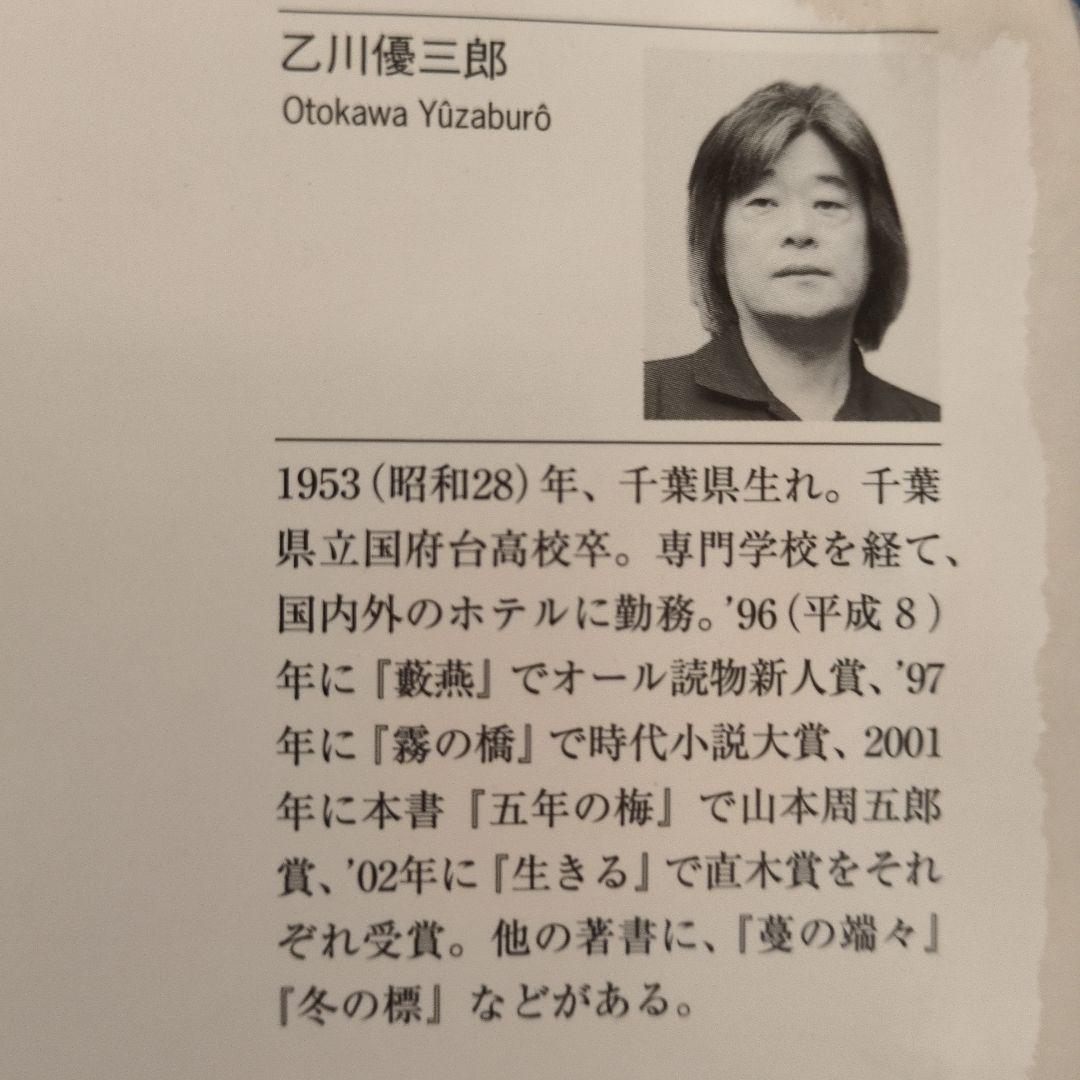 乙川優三郎
Otokawa Yûzaburô
1953（昭和28）年、千葉県生れ。千葉
県立国府台高校卒。専門学校を経て、
国内外のホテルに勤務。’96（平成８）
年に『藪燕』でオール読物新人賞、’97
年に『霧の橋』で時代小説大賞、2001
年に本書『五年の梅』で山本周五郎
賞、’02年に『生きる』で直木賞をそれ
ぞれ受賞。他の著書に、『蔓の端々』
『冬の標』などがある。